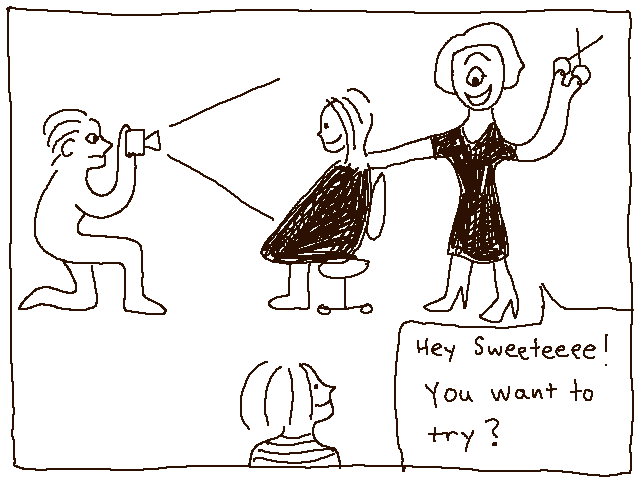 Hey Sweeteeee!
You want to
try?